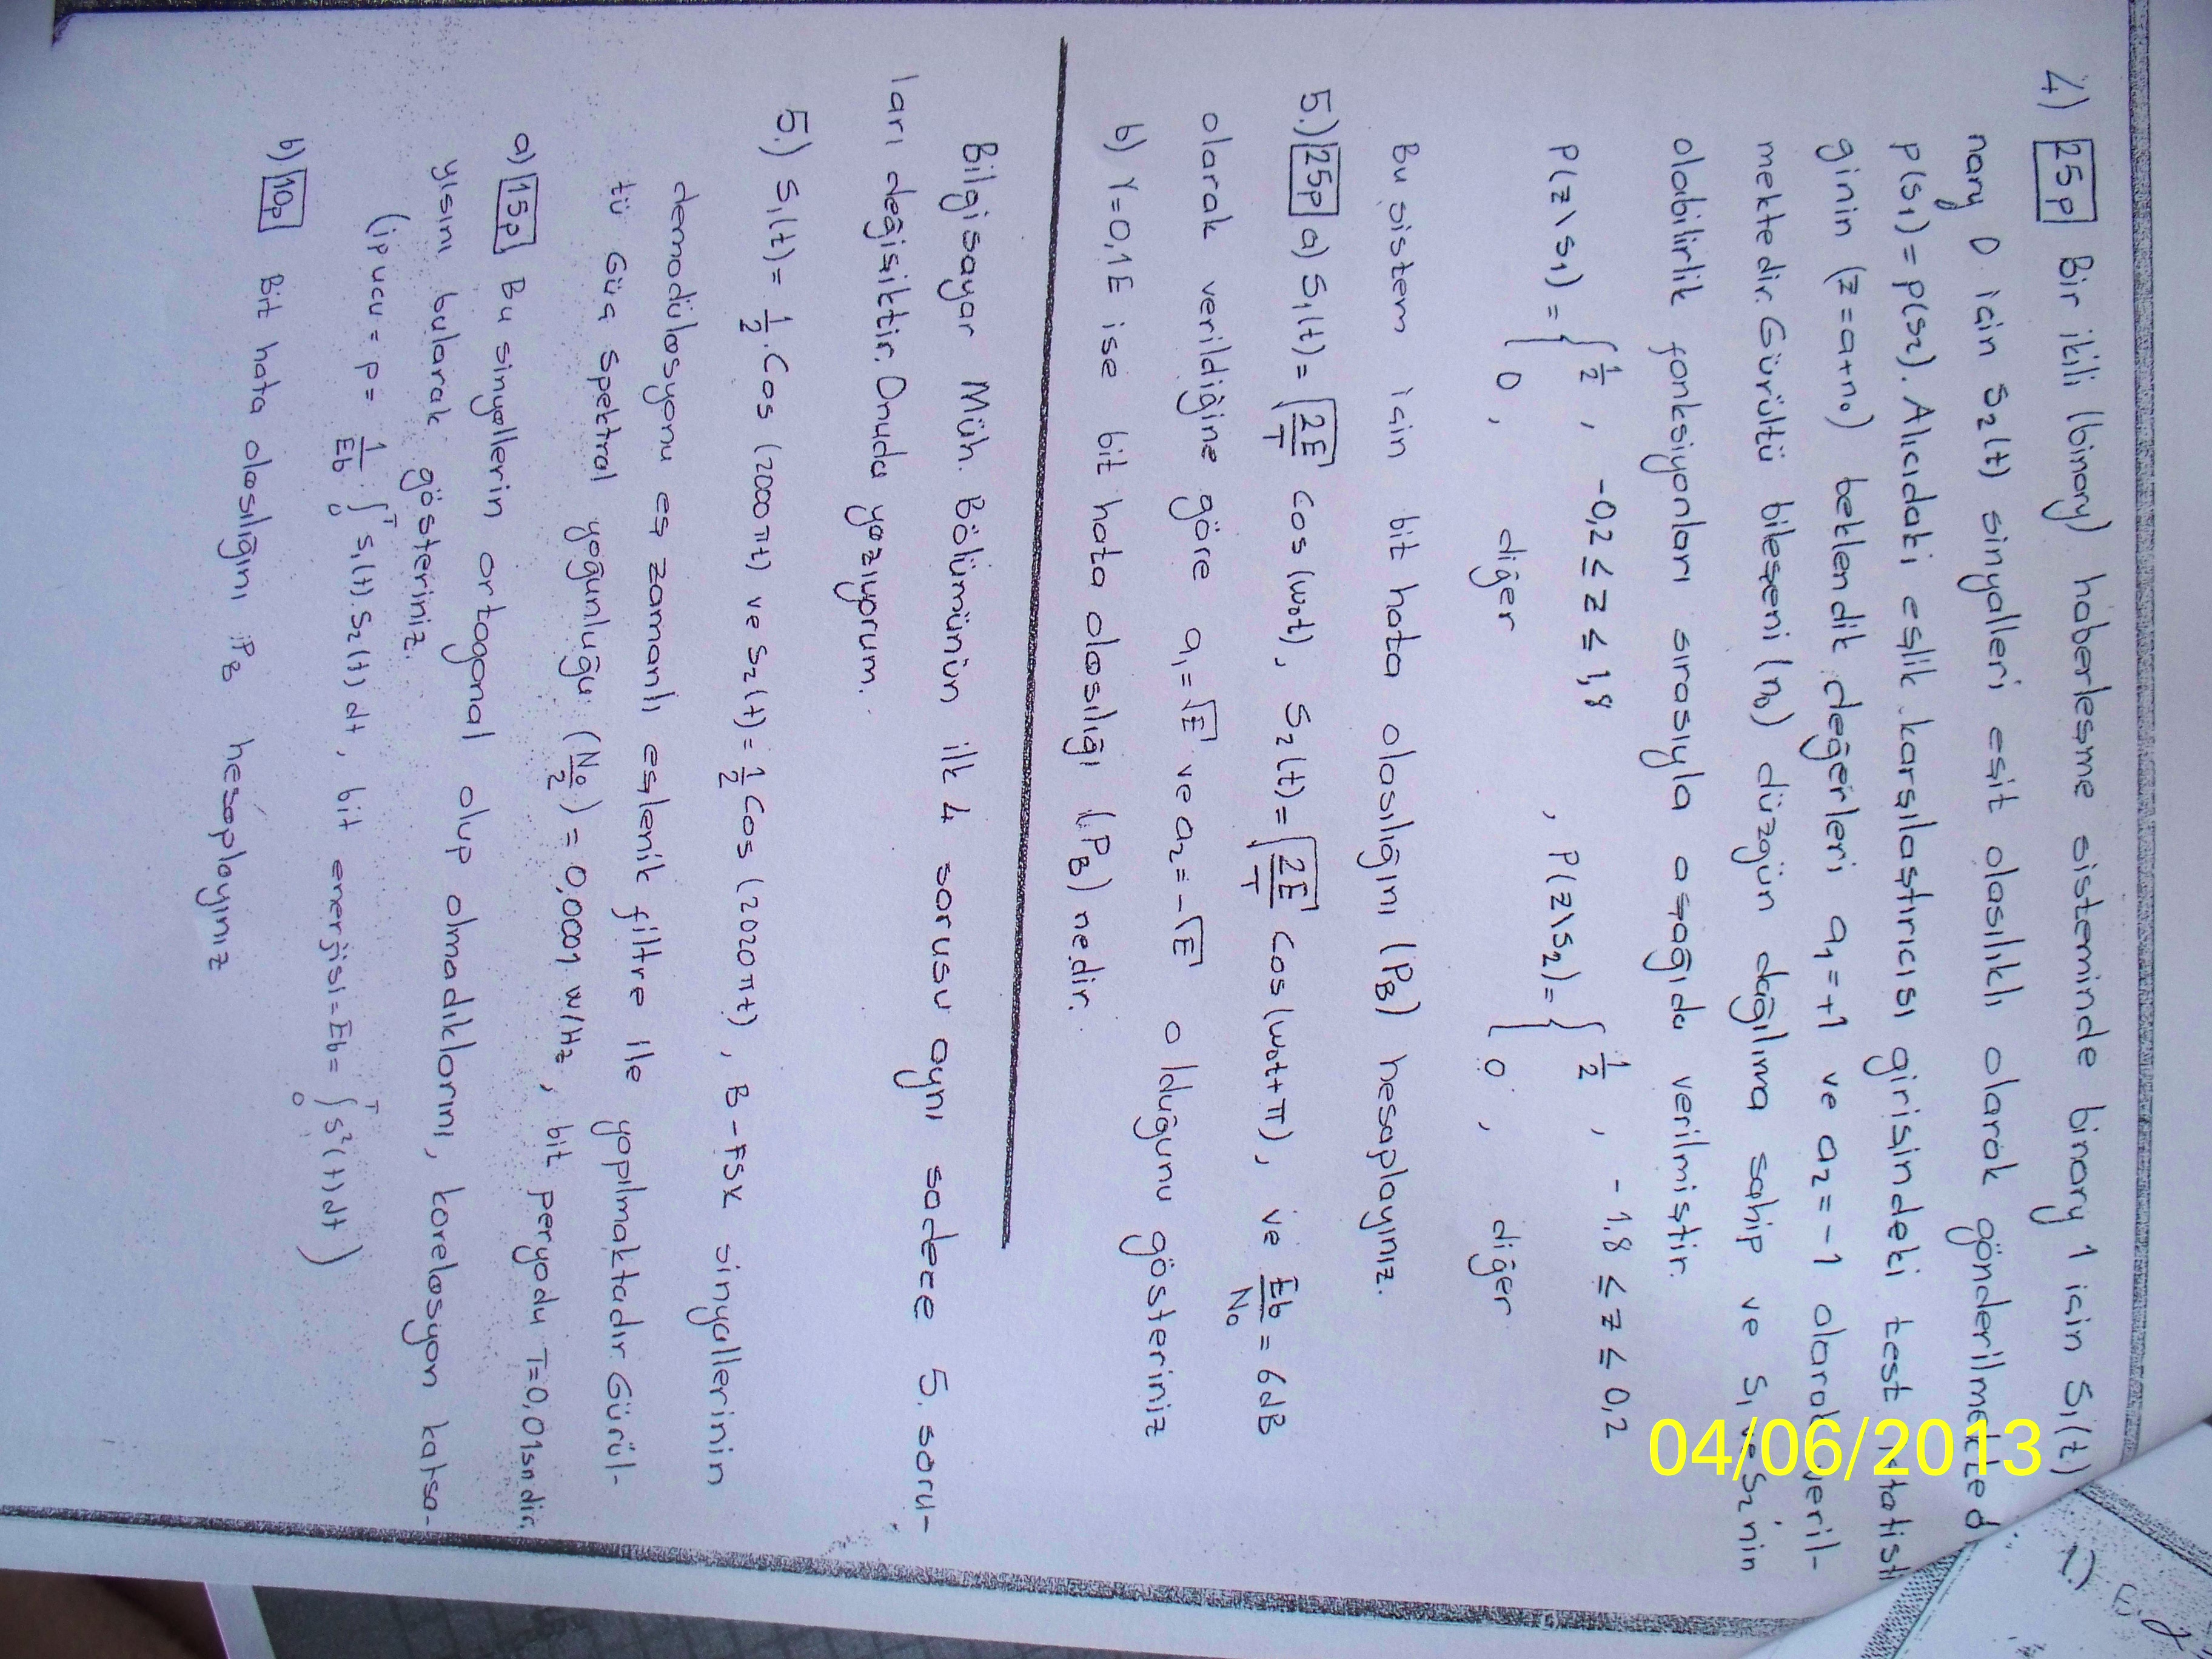 4) 25p Bir ikili (binary) haberleşme sisteminde binary 1 için S₁(t)
nary 0 için S₂(t) sinyalleri eşit olasılıklı olarak gönderilmekted
P(S₁) = P(S₂). Alıcıdaki eşlik karşılaştırıcısı girişindeki test istatisti
ginin (z=a+n₀) beklendik değerleri a₁=+1 ve a₂=-1 olarak veril-
mektedir. Gürültü bileşeni (n₀) düzgün dağılıma sahip ve S₁ ve S₂'nin
olabilirlik fonksiyonları sırasıyla aşağıda verilmiştir.
P(z\S₁) = { 1/2 , -0,2 ≤ z ≤ 1,8 , P(z\S₂) = { 1/2 , -1,8 ≤ z ≤ 0,2
0 , diğer 0 , diğer
Bu sistem için bit hata olasılığını (P_B) hesaplayınız.
5.) 25p a) S₁(t) = √(2E/T) cos(w₀t), S₂(t) = √(2E/T) cos(w₀t+π), ve Eb/N₀ = 6dB
olarak verildiğine göre a₁=√E ve a₂=-√E olduğunu gösteriniz
b) γ=0,1E ise bit hata olasılığı (P_B) nedir.
Bilgisayar Müh. Bölümünün ilk 4 sorusu aynı sadece 5. soru-
ları değişiktir. Onuda yazıyorum.
5.) S₁(t) = 1/2 . Cos (2000πt) ve S₂(t) = 1/2 Cos (2020πt) , B-FSK sinyallerinin
demodülasyonu eş zamanlı eşlenik filtre ile yapılmaktadır. Gürül-
tü Güç spektral yoğunluğu (N₀/2) = 0,0001 W/Hz , bit peryodu T=0,01sn dir.
a) 15p Bu sinyallerin ortogonal olup olmadıklarını, korelasyon katsa-
yısını bularak gösteriniz.
(ipucu = p = 1/Eb . ∫₀ᵀ S₁(t).S₂(t) dt , bit enerjisi = Eb = ∫₀ᵀ S²(t) dt )
b) 10p Bit hata olasılığını P_B hesaplayınız
04/06/2013